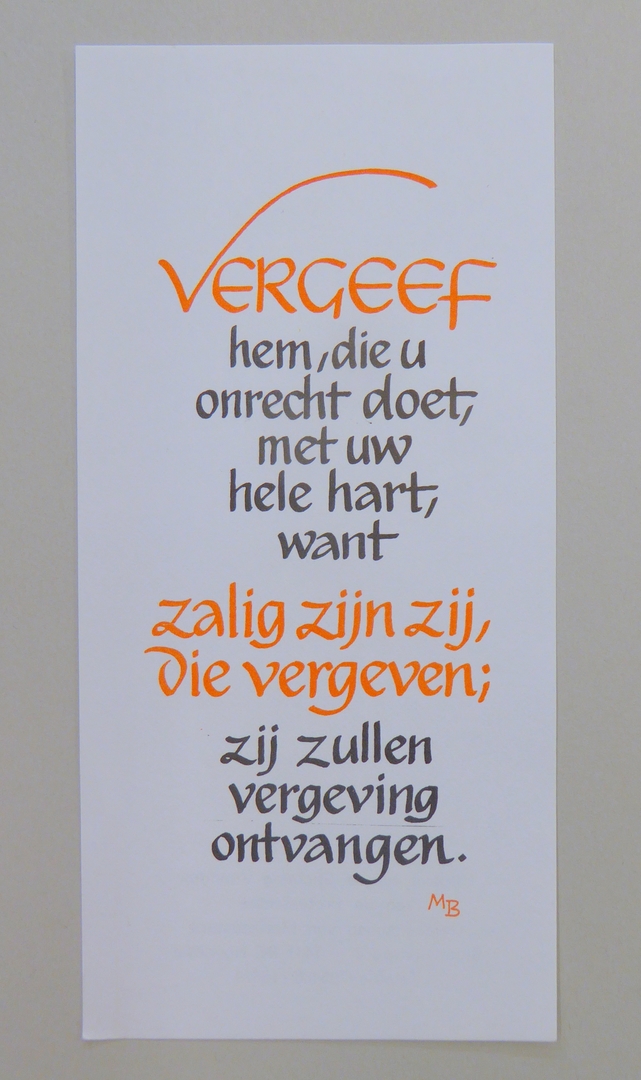 VERGEEF
hem, die u
onrecht doet,
met uw
hele hart,
want
zalig zijn zij,
die vergeven;
zij zullen
vergeving
ontvangen.
MB